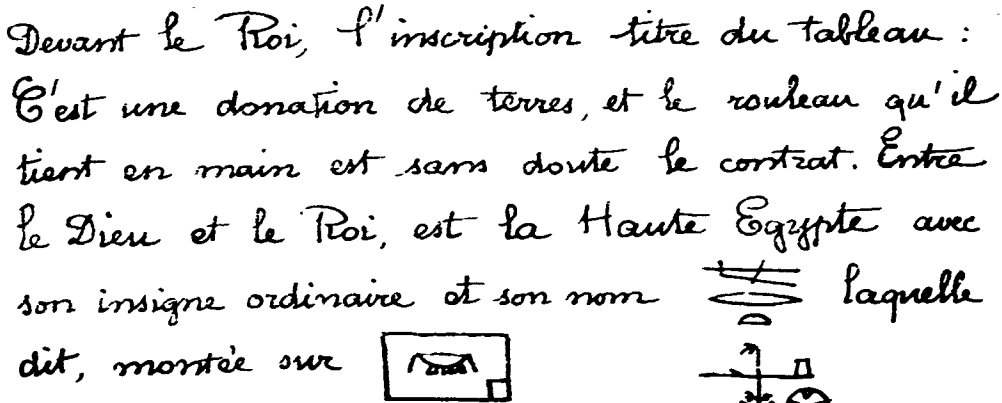 Devant le Roi, l'inscription titre du tableau :
C'est une donation de terres, et le rouleau qu'il
tient en main est sans doute le contrat. Entre
le Dieu et le Roi, est la Haute Egypte avec
son insigne ordinaire et son nom laquelle
dit, montée sur